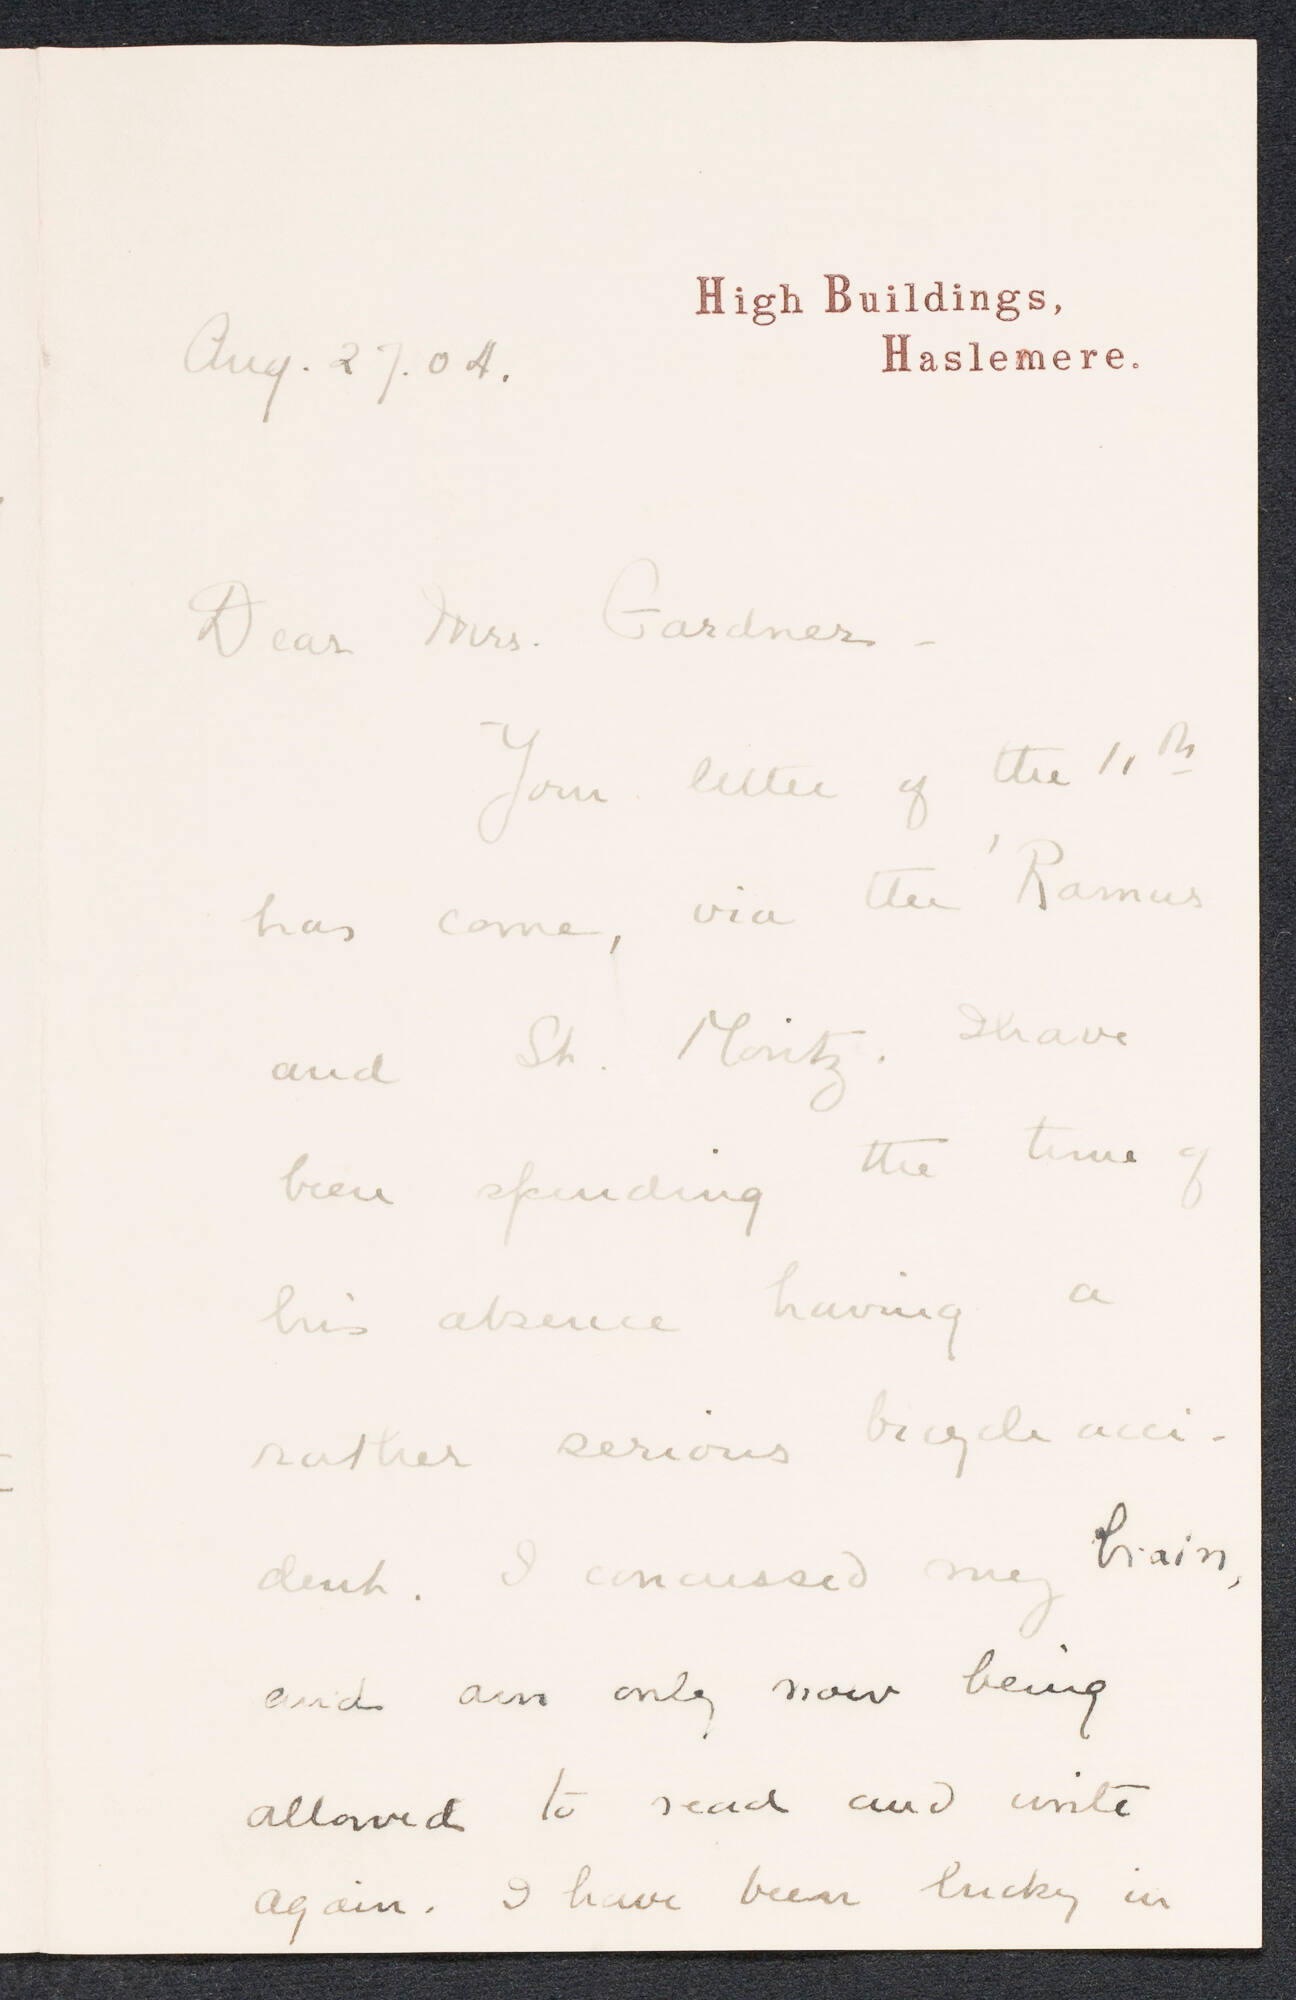 High Buildings,
Haslemere.
Aug. 27. 04.
Dear Mrs. Gardner -
Your letter of the 11th
has come, via the 'Ramus
and St. Moritz. I have
been spending the time of
his absence having a
rather serious bicycle acci-
dent. I concussed my brain,
and am only now being
allowed to read and write
again. I have been lucky in